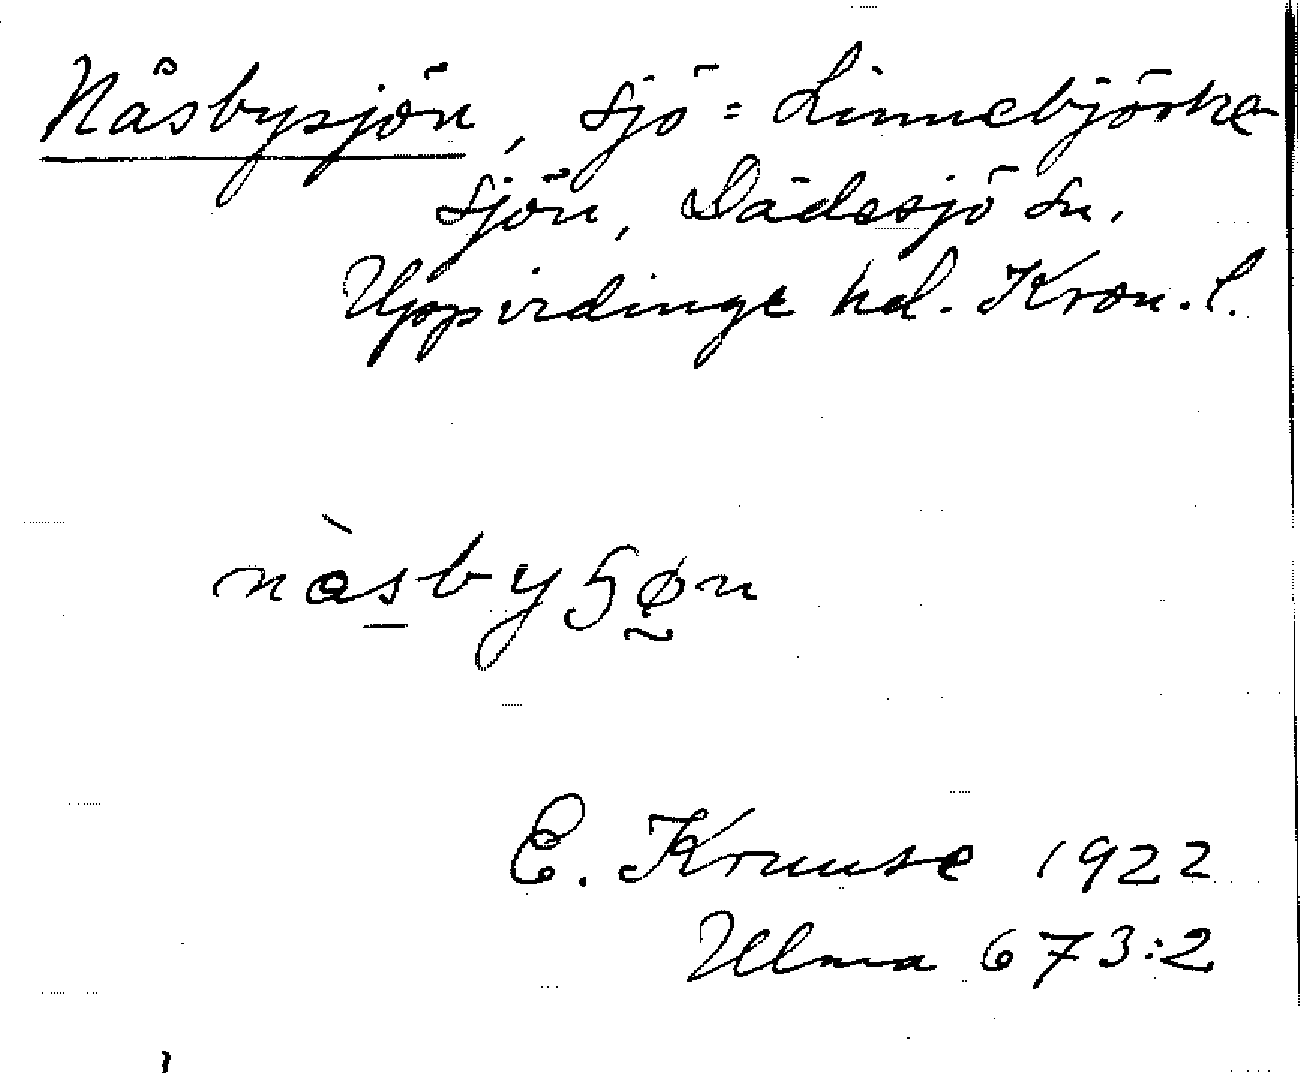 Nåsbysjön, sjö = Linnebjörke-
sjön, Dädesjö sn.
Uppvidinge hd. Kron. l.
nàsbyʃøn
E. Kruuse 1922
Ulma 673:2